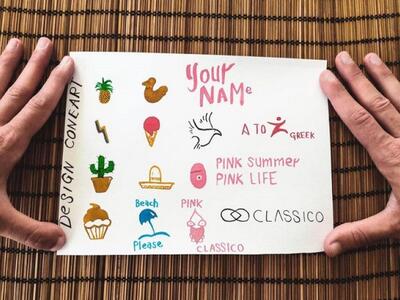 DESIGN CONEART
Your
NAMe
A TO GREEK
PINK Summer
PINK LIFE
Beach
Please
PINK
CLASSICO
CLASSICO